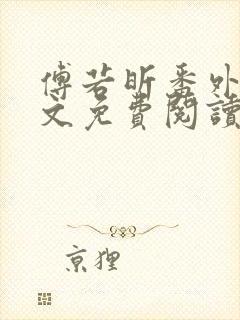 傅若昕番外
文免費閱讀
京狸